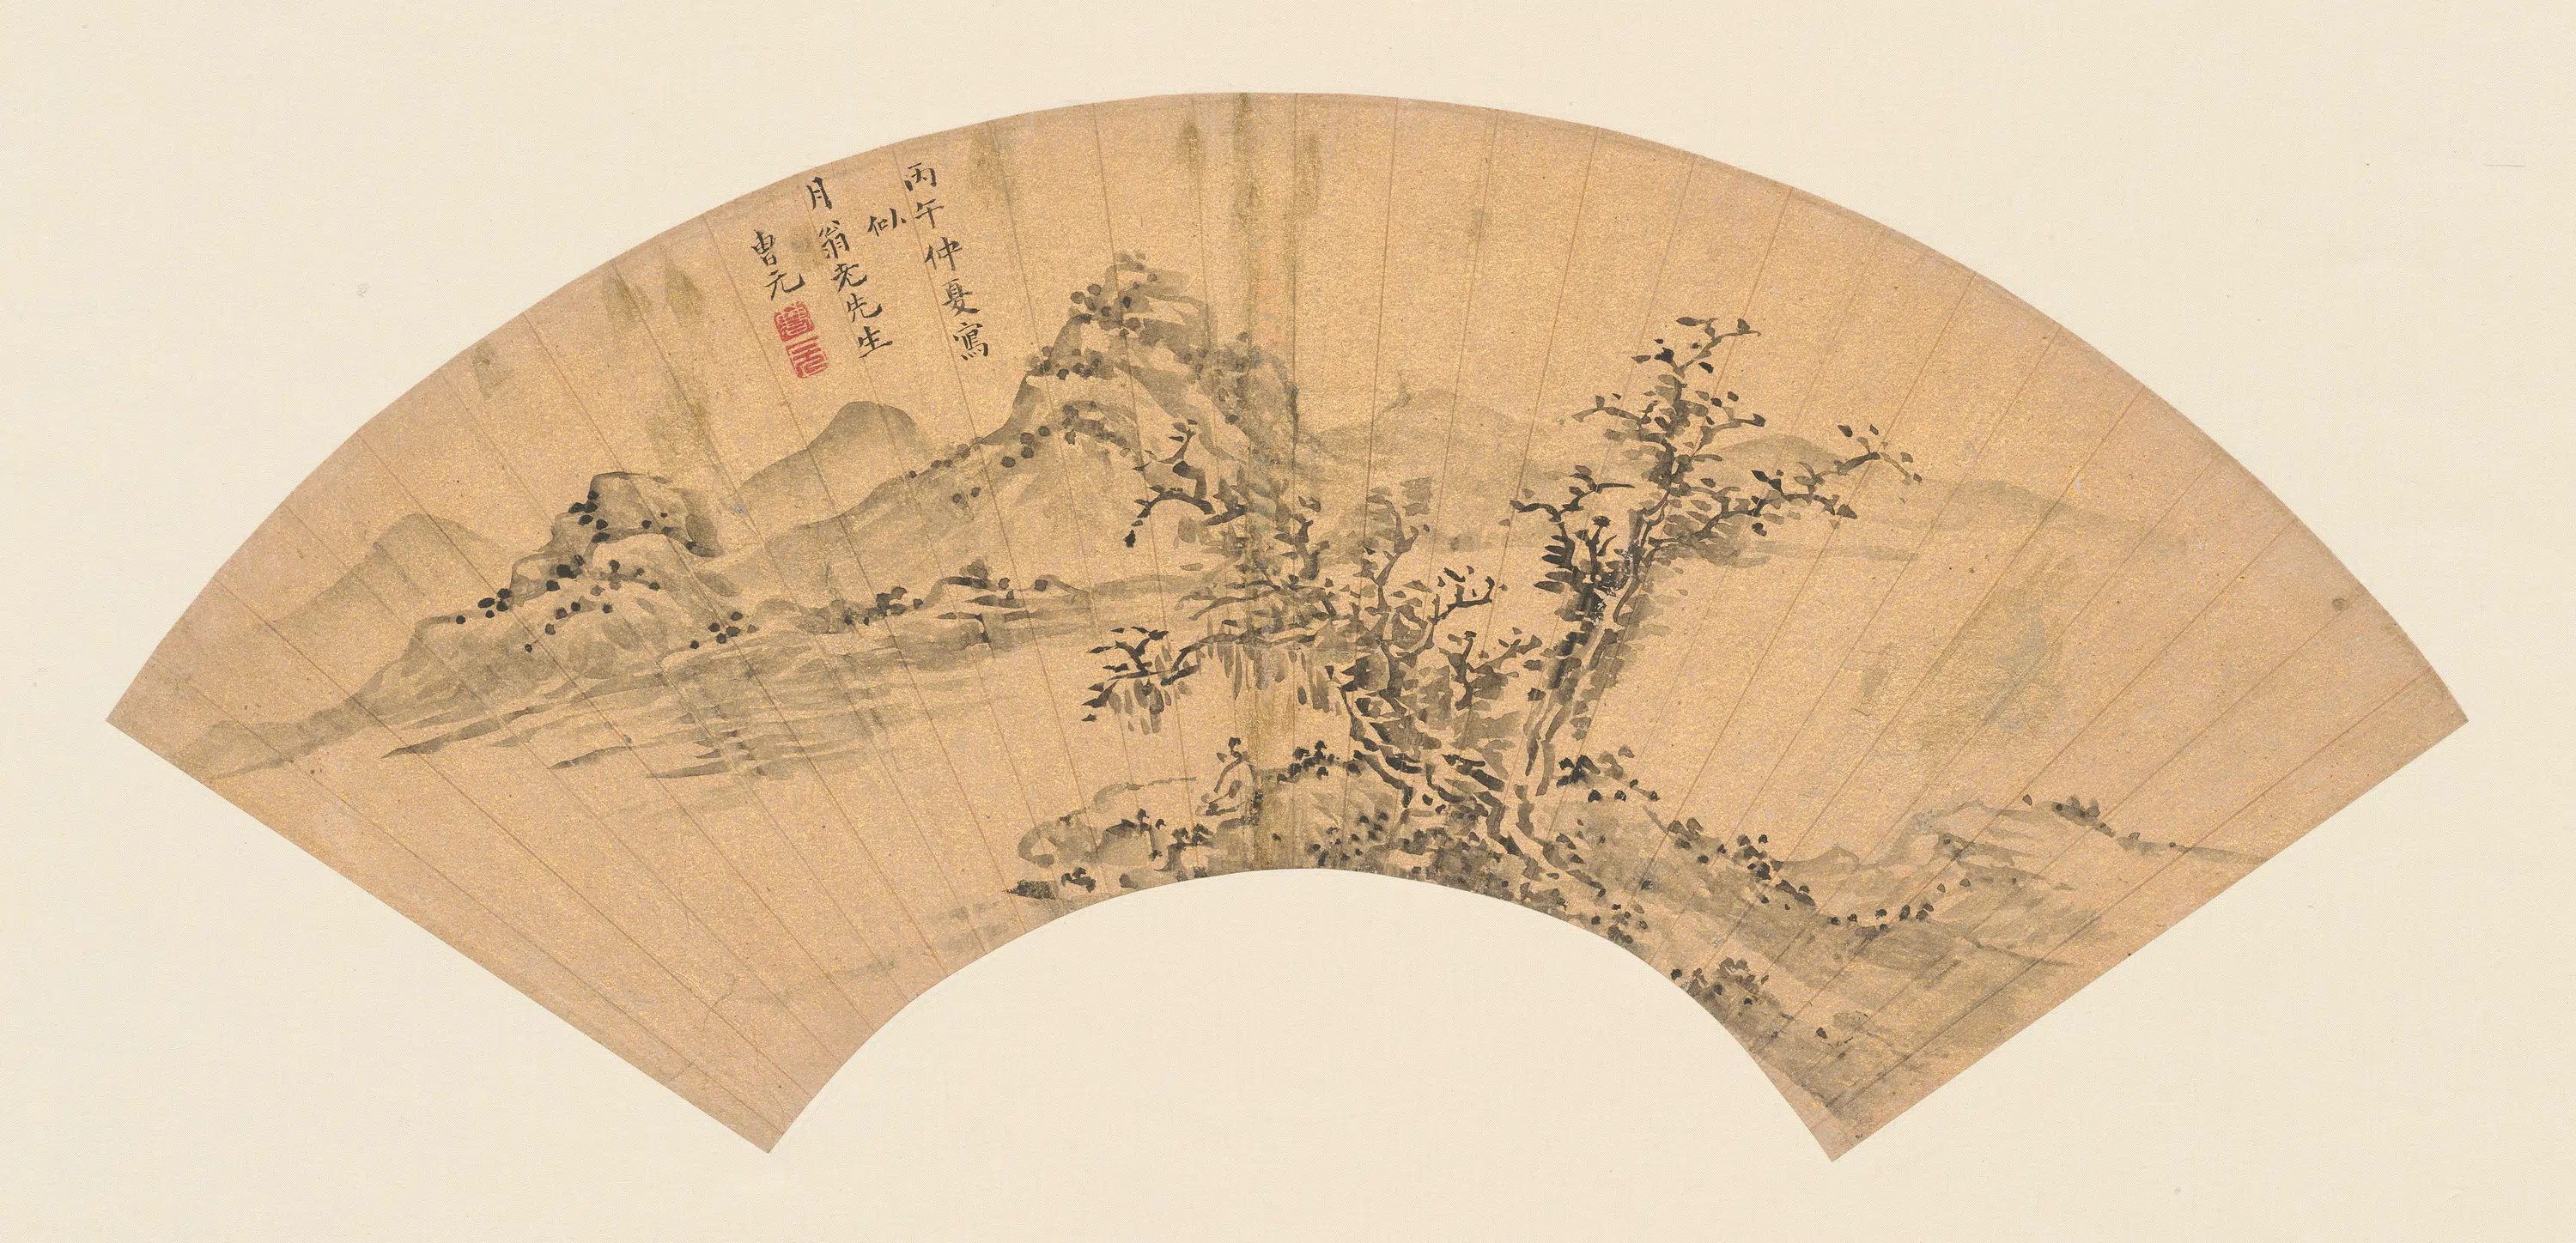 丙午仲夏寫
似
月翁老先生
曹元
曹
元